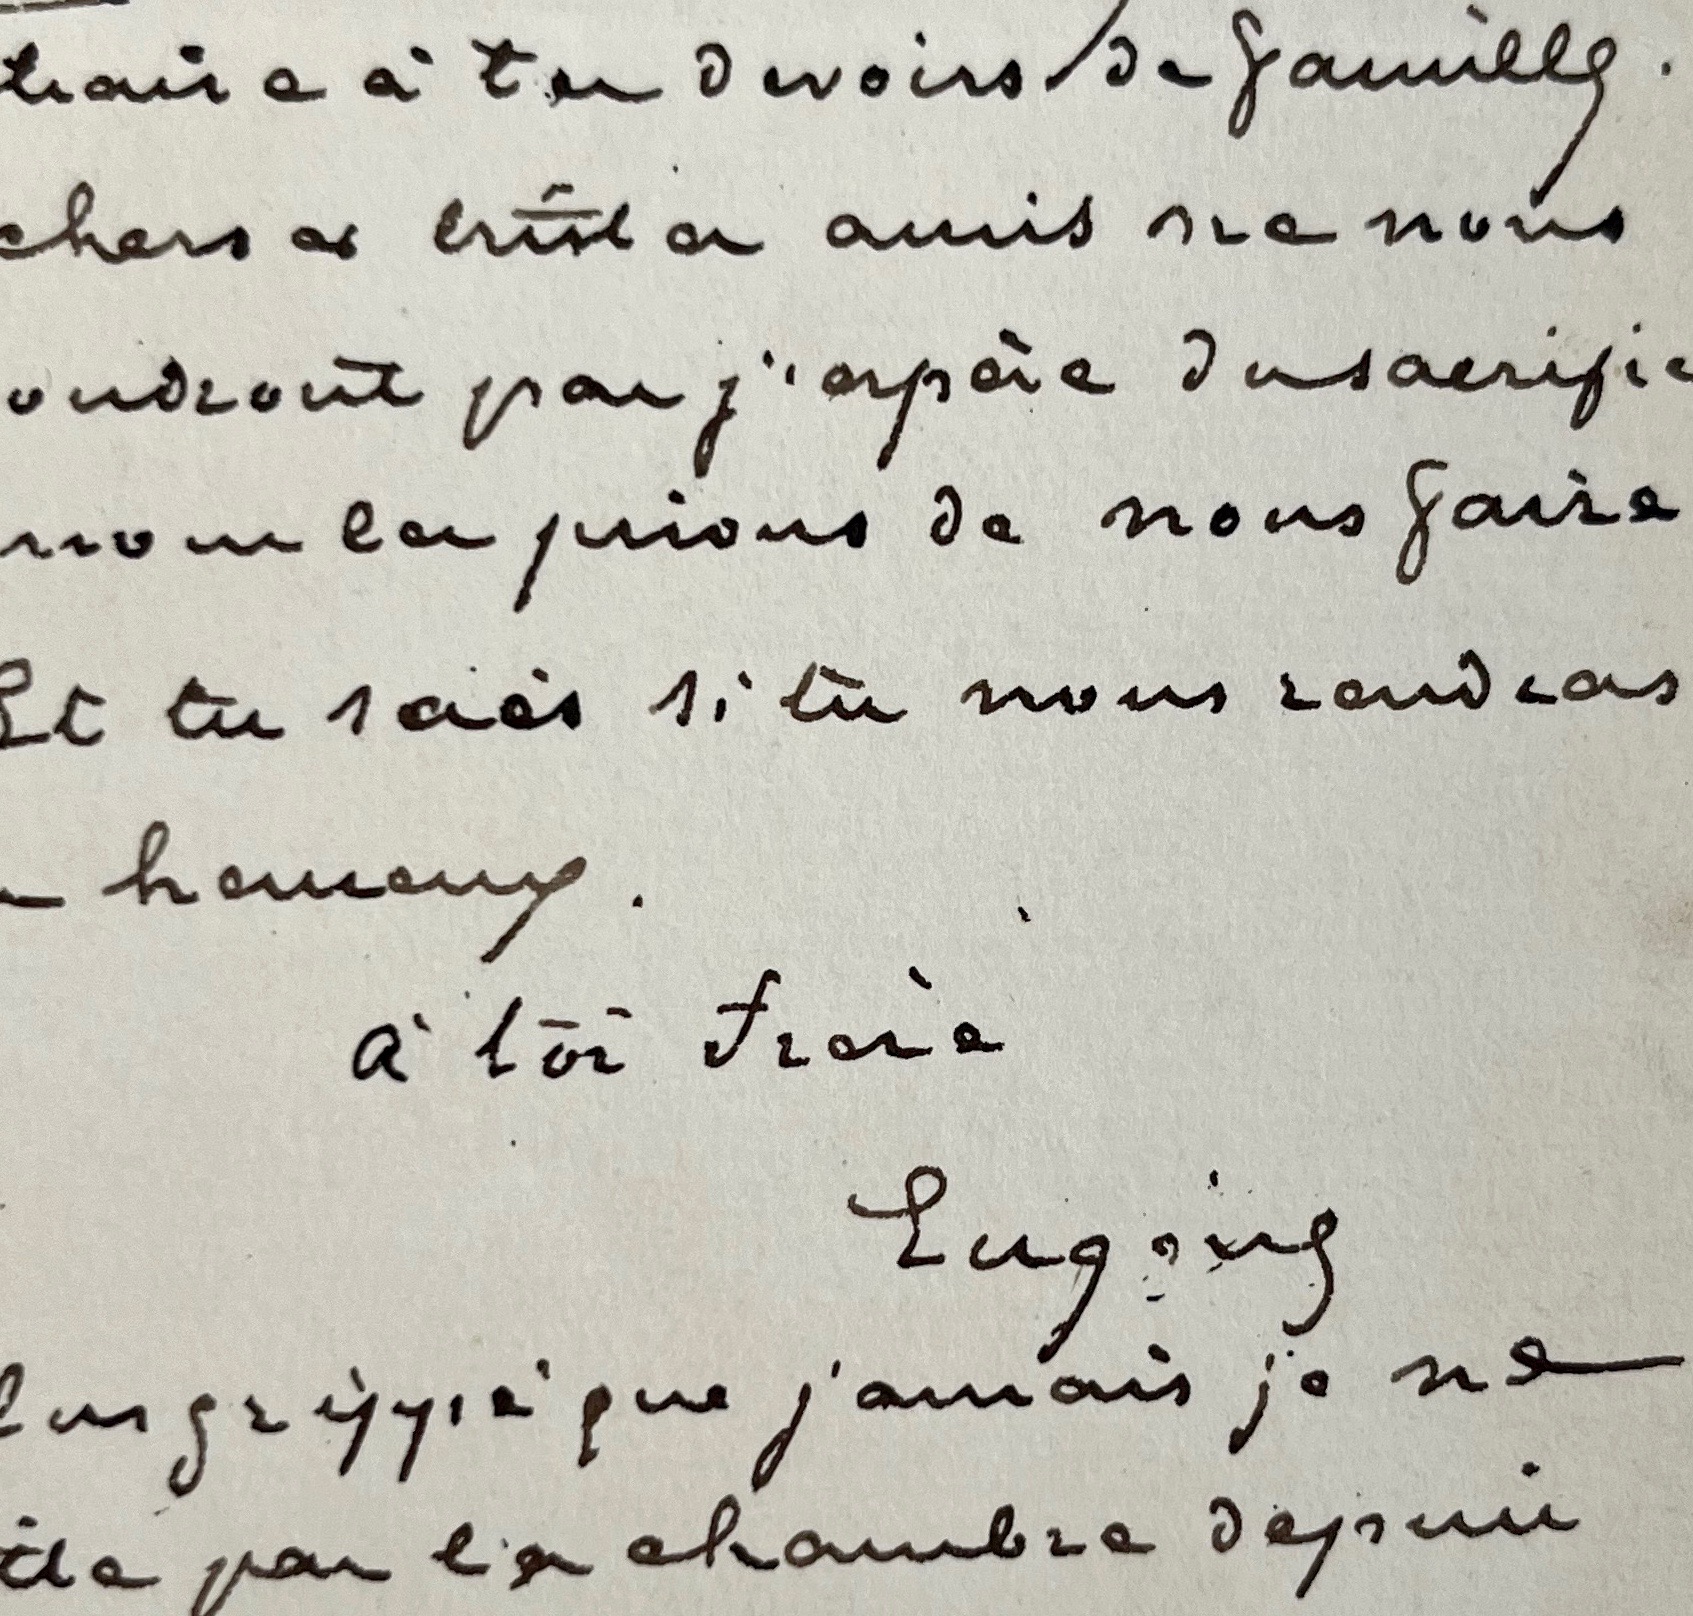 traire à tes devoirs de famille.
chers et tristes amis ne nous
oudront pas j'espère du sacrifi
nous les prions de nous faire
Et tu sais si tu nous rendras
heureux.
à toi frère
Eugène
lus grippé que jamais je ne
tte pas la chambre depuis